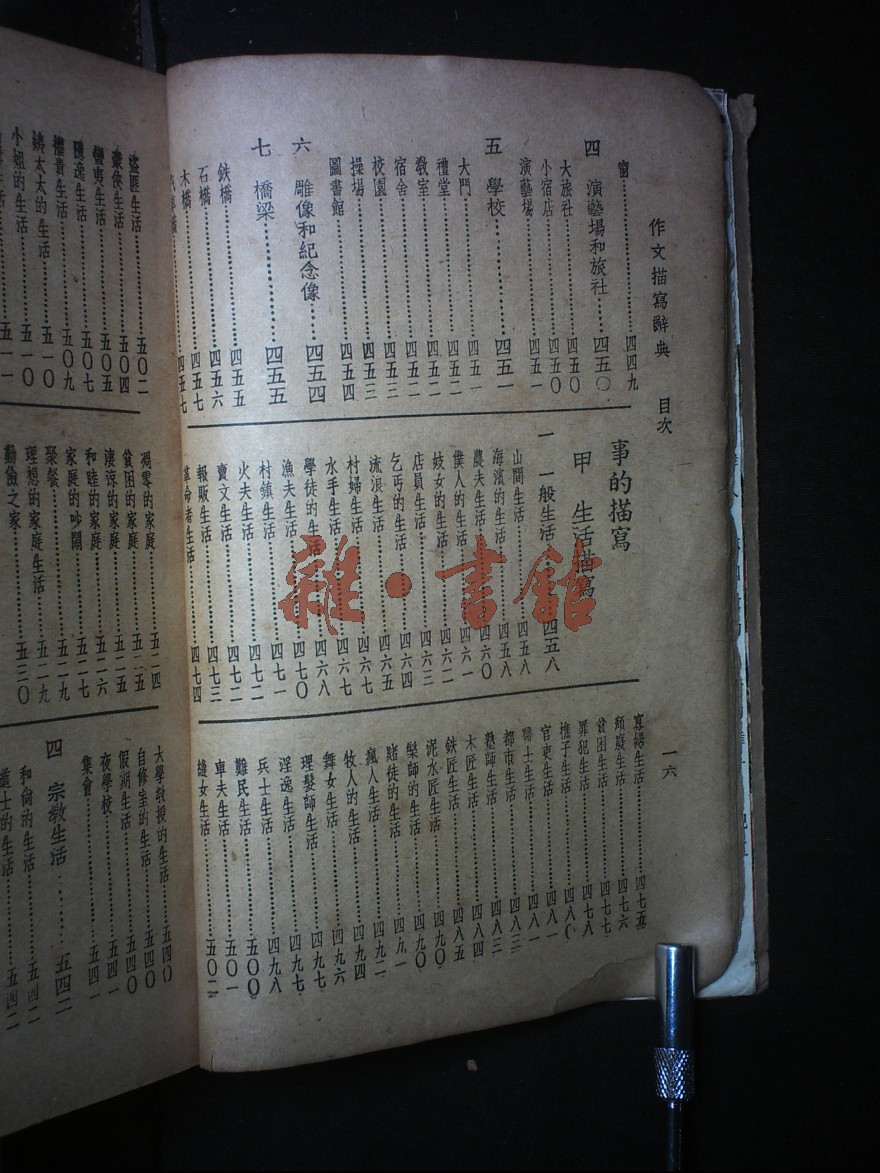 作文描寫辭典 目次
一六
窗……四四九
四 演藝場和旅社……四五〇
大旅社……四五〇
小宿店……四五〇
演藝場……四五一
五 學校……四五一
大門……四五一
禮堂……四五二
教室……四五二
宿舍……四五二
校園……四五三
操場……四五四
圖書館……四五四
六 雕像和紀念像……四五四
七 橋梁……四五五
鉄橋……四五五
石橋……四五六
木橋……四五七
四五七
事的描寫
甲 生活描寫
一 一般生活……四五八
山間生活……四五八
海濱的生活……四五八
農夫生活……四六〇
僕人的生活……四六一
妓女的生活……四六二
店員生活……四六三
乞丐的生活……四六四
流浪生活……四六五
村婦生活……四六六
水手生活……四六七
學徒的生活……四六八
漁夫生活……四七〇
村鎮生活……四七一
火夫生活……四七二
賣文生活……四七二
報販生活……四七三
革命者生活……四七四
寡婦生活……四七五
頹廢生活……四七六
貧困生活……四七七
罪犯生活……四七八
樵子生活……四八〇
官吏生活……四八一
醫士生活……四八一
都市生活……四八二
塾師生活……四八三
木匠生活……四八四
鉄匠生活……四八五
泥水匠生活……四九〇
樂師的生活……四九〇
賭徒的生活……四九一
瘋人生活……四九二
牧人的生活……四九四
舞女生活……四九六
理髮師生活……四九七
淫逸生活……四九七
兵士生活……四九八
難民生活……五〇〇
車夫生活……五〇一
縫女生活……五〇二
盜匪生活……五〇二
豪俠生活……五〇四
蠻夷生活……五〇五
隱逸生活……五〇七
權貴生活……五〇九
姨太太的生活……五一〇
小姐的生活……五一〇
五一一
凋零的家庭……五二四
貧困的家庭……五二五
淒涼的家庭……五二五
和睦的家庭……五二六
家庭的吵鬧……五二七
聚餐……五二九
理想的家庭生活……五二九
勤儉之家……五三〇
大學教授的生活……五四〇
自修室的生活……五四〇
假期生活……五四〇
夜學校……五四一
集會……五四一
四 宗教生活……五四二
和尚的生活……五四二
道士的生活……五四二
雜·書館